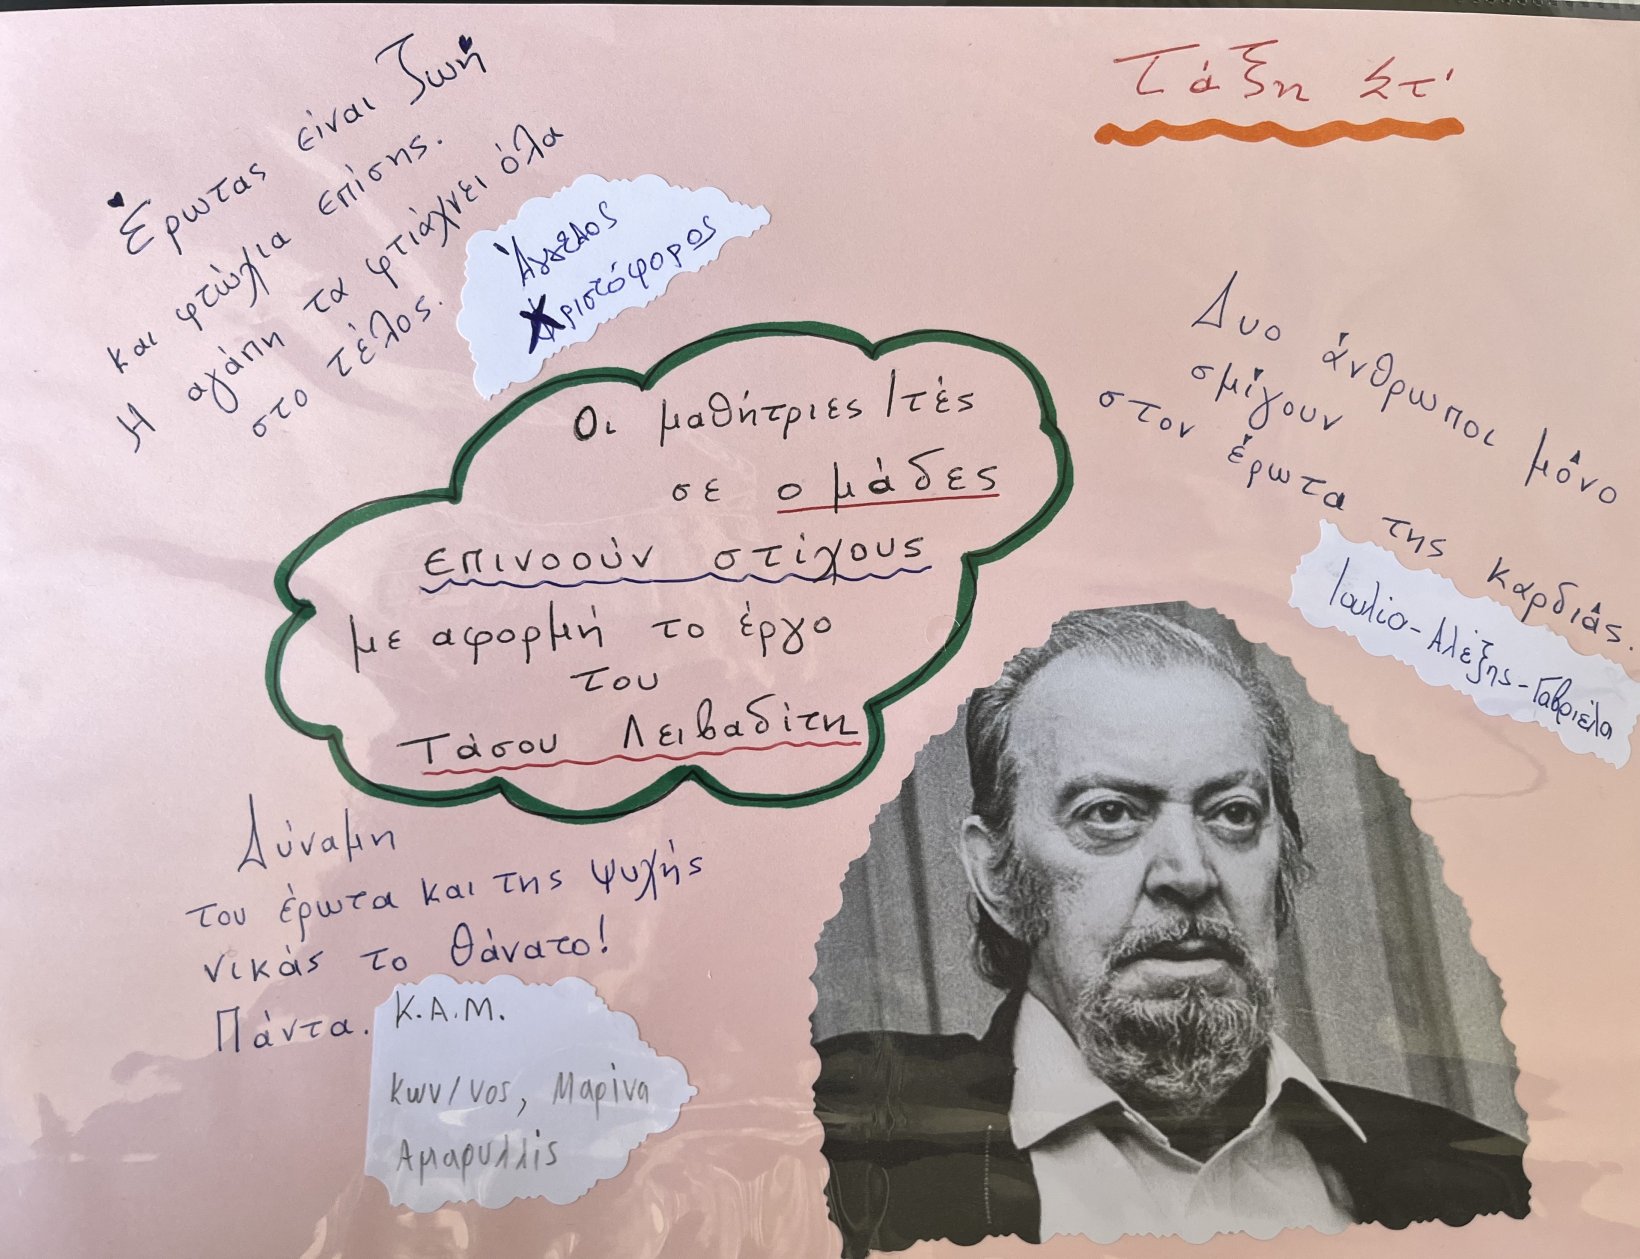 Τάξη Στ'
Έρωτας είναι ζωή
και φτώχια επίσης.
Η αγάπη τα φτιάχνει όλα
στο τέλος.
Άγγελος
Χριστόφορος
Οι μαθήτριες/τές
σε ομάδες
επινοούν στίχους
με αφορμή το έργο
του
Τάσου Λειβαδίτη
Δυο άνθρωποι μόνο
σμίγουν
στον έρωτα της καρδιάς.
Ιουλία-Αλέξης-Γαβριέλα
Δύναμη
του έρωτα και της ψυχής
νικάς το θάνατο!
Πάντα.
Κ.Α.Μ.
Κων/νος, Μαρίνα
Αμαρυλλίς